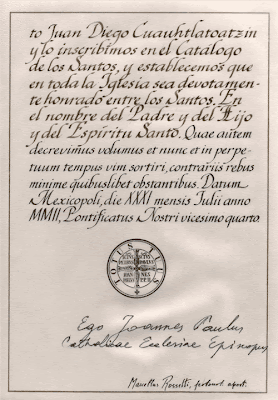 to Juan Diego Cuauhtlatoatzin
y lo inscribimos en el Catálogo
de los Santos, y establecemos que
en toda la Iglesia sea devotamen-
te honrado entre los Santos. En
el nombre del Padre y del Hijo
y del Espíritu Santo. Quae autem
decrevimus volumus et nunc et in perpe-
tuum tempus vim sortiri, contrariis rebus
minime quibuslibet obstantibus. Datum
Mexicopoli, die XXXI mensis Iulii anno
MMII, Pontificatus Nostri vicesimo quarto.
Ego Joannes Paulus
Catholicae Ecclesiae Episcopus
Marcellus Rossetti,